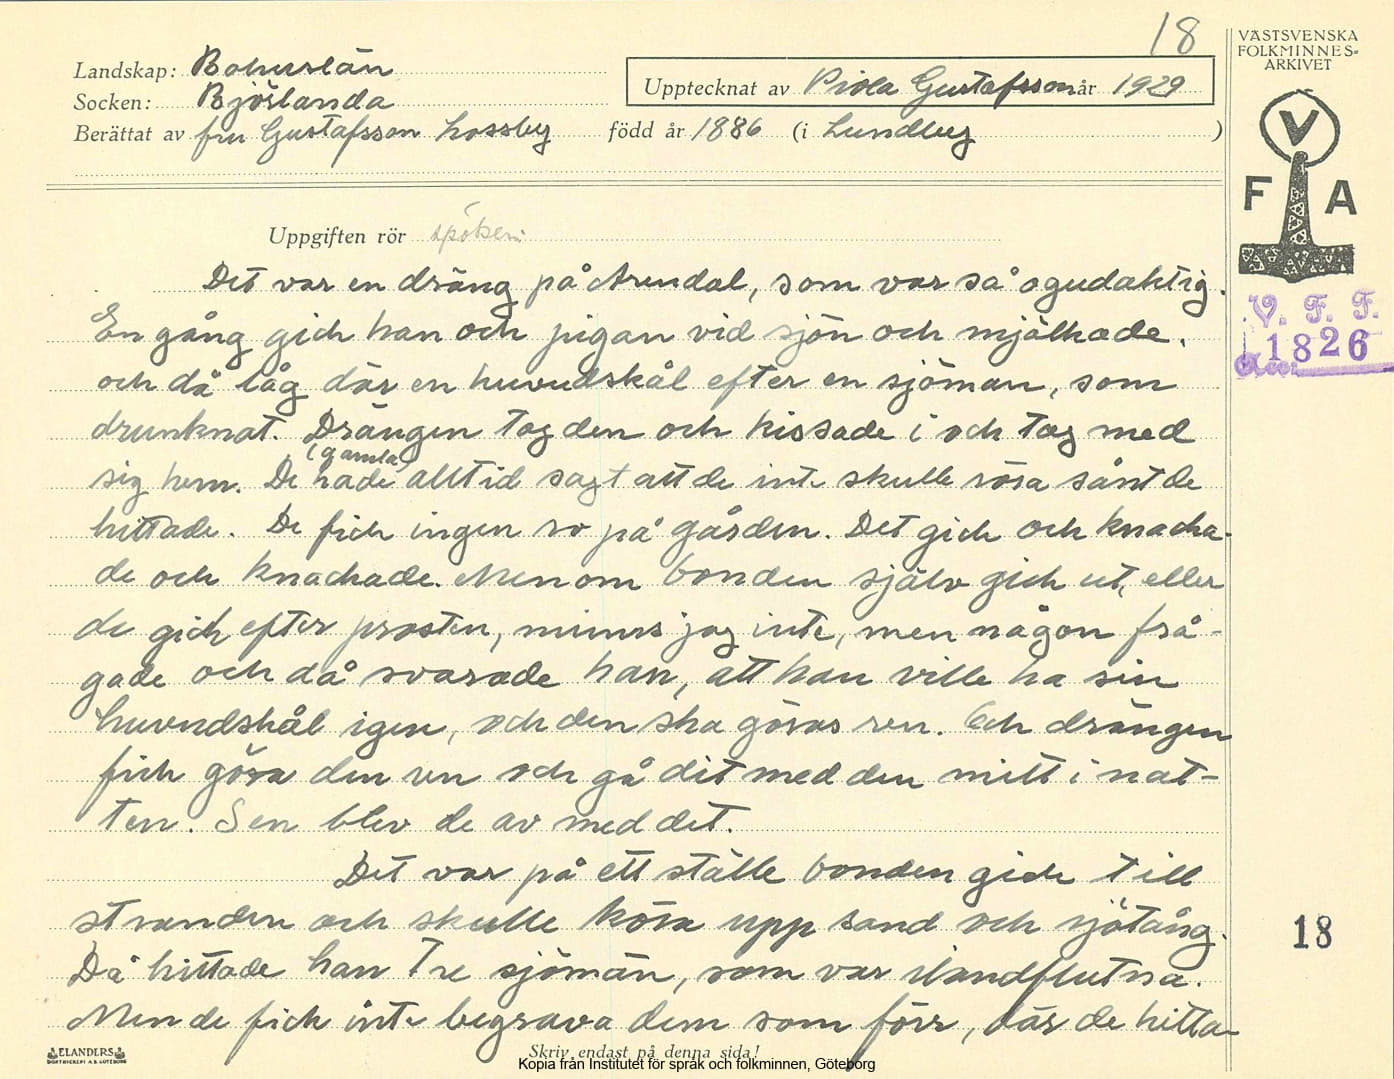 18
VÄSTSVENSKA
FOLKMINNES-
ARKIVET
Landskap: Bohuslän
Socken: Björlanda
Upptecknat av Viola Gustafsson år 1929
Berättat av fru Gustafsson Lossby född år 1886 (i Lundby )
V
F A
Uppgiften rör spöken
V. F. F.
1826
Acc:
Det var en dräng på Arendal, som var så ogudaktig.
En gång gick han och pigan vid sjön och mjölkade.
och då låg där en huvudskål efter en sjöman, som
drunknat. Drängen tog den och kissade i och tog med
(gamla)
sig hem. De hade alltid sagt att de inte skulle röra sånt de
hittade. De fick ingen ro på gården. Det gick och knacka-
de och knackade. Men om bonden själv gick ut, eller
de gick efter prosten, minns jag inte, men någon frå-
gade och då svarade han, att han ville ha sin
huvudskål igen, och den ska göras ren. Och drängen
fick göra den ren och gå dit med den mitt i nat-
ten. Sen blev de av med det.
Det var på ett ställe bonden gick till
stranden och skulle köra upp sand och sjötång.
Då hittade han tre sjömän, som var ilandflutna.
Men de fick inte begrava dem som förr, där de hitta-
18
ELANDERS
BOKTRYCKERI A.B. GÖTEBORG
Skriv endast på denna sida!
Kopia från Institutet för språk och folkminnen, Göteborg